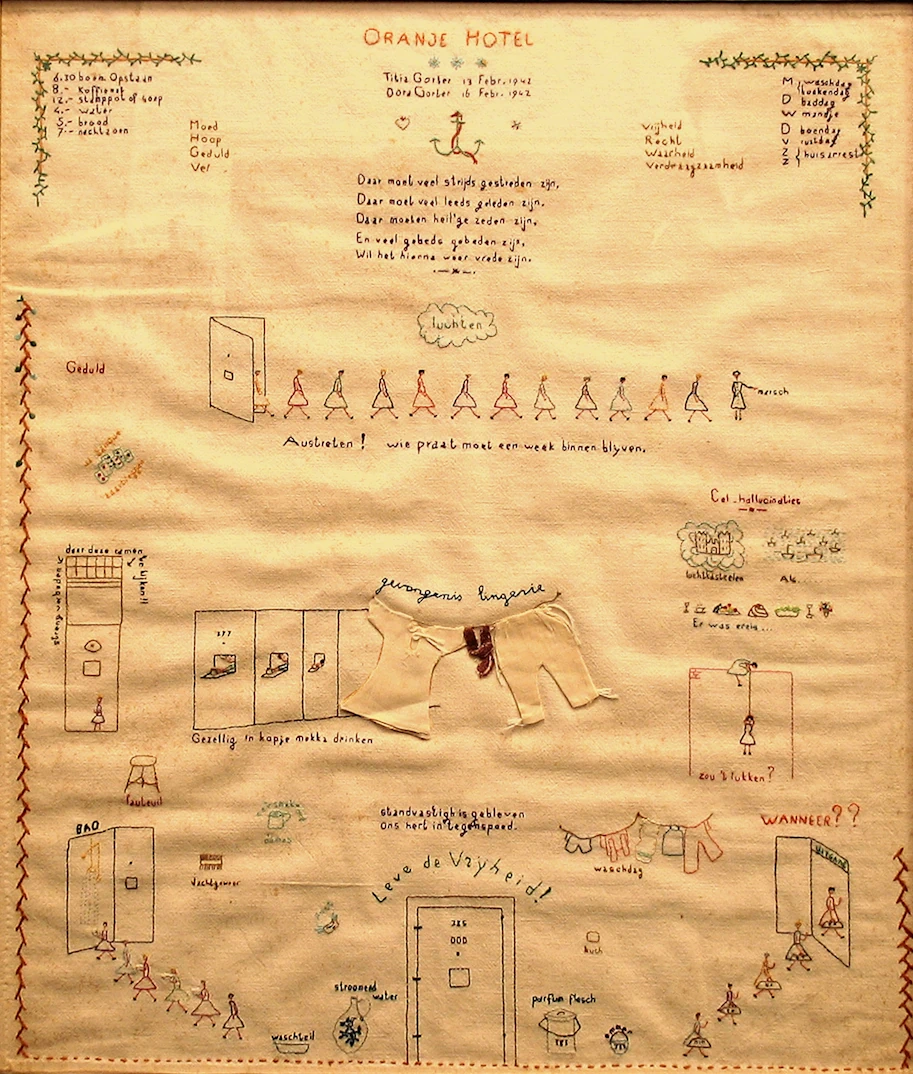 ORANJE HOTEL
Titia Gorter 13 Febr. 1942
Dora Gorter 16 Febr. 1942
6.30 boem Opstaan
8.- Koffiemet
12.- stamppot of soep
4.- water
5.- brood
7.- nachtzoen
Moed
Hoop
Geduld
Ver
Vrijheid
Recht
Waarheid
Verdraagzaamheid
M waschdag
D baddag
W mandje
D boendag
V rustdag
Z huisarrest
Z
Daar moet veel strijds gestreden zijn,
Daar moet veel leeds geleden zijn.
Daar moeten heil'ge zeden zijn,
En veel gebeds gebeden zijn,
Wil het hierna weer vrede zijn.
luchten
Geduld
marsch
Austreten! wie praat moet een week binnen blijven.
Cel-hallucinaties
luchtkasteelen
Als..
Er was eens...
door deze ramen
te kijken!!
streng verboden
gevangenis lingerie
377
Gezellig 'n kopje mokka drinken
zou 't lukken?
fauteuil
standvastig is gebleven
ons hert in tegenspoed.
waschdag
WANNEER??
UITGANG
BAD
Leve de Vrijheid!
385
stroomend
water
waschteil
parfum flesch
emmer